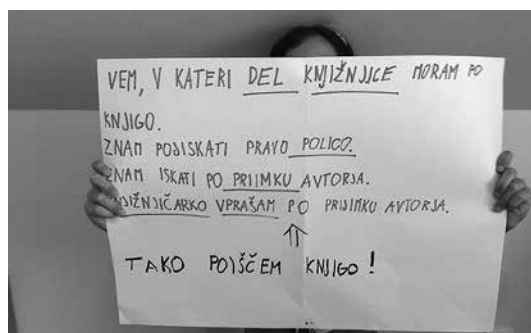 VEM, V KATERI DEL KNJIŽNJICE MORAM PO
KNJIGO.
ZNAM POJISKATI PRAVO POLICO.
ZNAM ISKATI PO PRIJMKU AVTORJA.
KNJIŽNJIČARKO VPRAŠAM PO PRIJIMKU AVTORJA.
TAKO POIŠČEM KNJIGO!